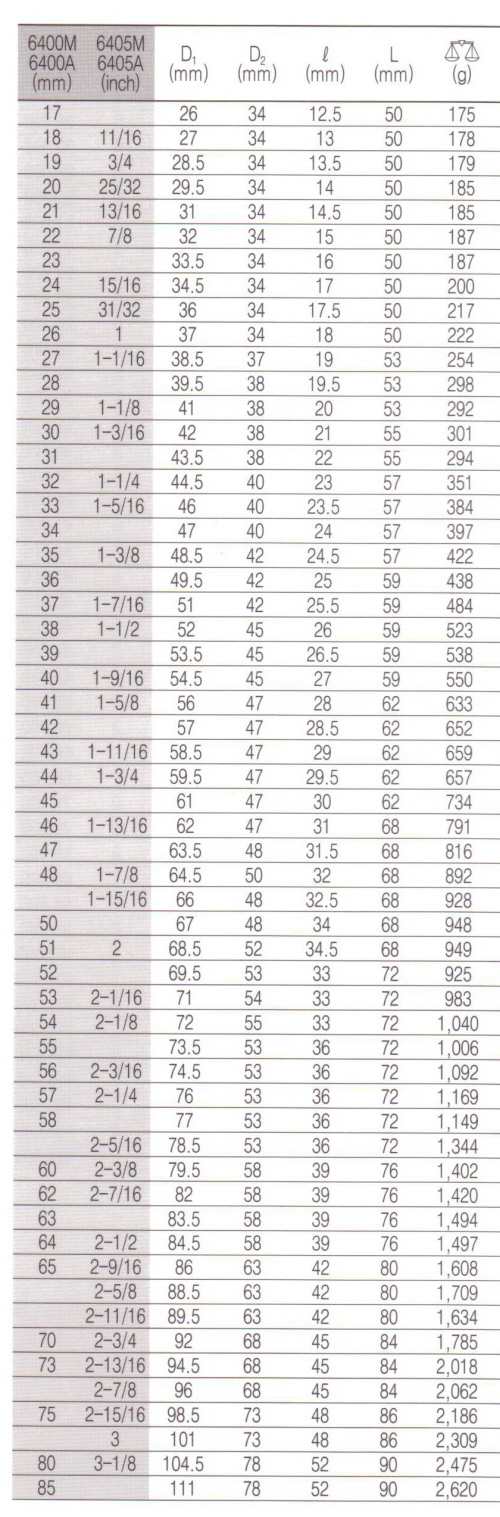 6400M 6405M D1 D2 ℓ L
6400A 6405A (mm) (mm) (mm) (mm) (g)
(mm) (inch)
17 26 34 12.5 50 175
18 11/16 27 34 13 50 178
19 3/4 28.5 34 13.5 50 179
20 25/32 29.5 34 14 50 185
21 13/16 31 34 14.5 50 185
22 7/8 32 34 15 50 187
23 33.5 34 16 50 187
24 15/16 34.5 34 17 50 200
25 31/32 36 34 17.5 50 217
26 1 37 34 18 50 222
27 1-1/16 38.5 37 19 53 254
28 39.5 38 19.5 53 298
29 1-1/8 41 38 20 53 292
30 1-3/16 42 38 21 55 301
31 43.5 38 22 55 294
32 1-1/4 44.5 40 23 57 351
33 1-5/16 46 40 23.5 57 384
34 47 40 24 57 397
35 1-3/8 48.5 42 24.5 57 422
36 49.5 42 25 59 438
37 1-7/16 51 42 25.5 59 484
38 1-1/2 52 45 26 59 523
39 53.5 45 26.5 59 538
40 1-9/16 54.5 45 27 59 550
41 1-5/8 56 47 28 62 633
42 57 47 28.5 62 652
43 1-11/16 58.5 47 29 62 659
44 1-3/4 59.5 47 29.5 62 657
45 61 47 30 62 734
46 1-13/16 62 47 31 68 791
47 63.5 48 31.5 68 816
48 1-7/8 64.5 50 32 68 892
1-15/16 66 48 32.5 68 928
50 67 48 34 68 948
51 2 68.5 52 34.5 68 949
52 69.5 53 33 72 925
53 2-1/16 71 54 33 72 983
54 2-1/8 72 55 33 72 1,040
55 73.5 53 36 72 1,006
56 2-3/16 74.5 53 36 72 1,092
57 2-1/4 76 53 36 72 1,169
58 77 53 36 72 1,149
2-5/16 78.5 53 36 72 1,344
60 2-3/8 79.5 58 39 76 1,402
62 2-7/16 82 58 39 76 1,420
63 83.5 58 39 76 1,494
64 2-1/2 84.5 58 39 76 1,497
65 2-9/16 86 63 42 80 1,608
2-5/8 88.5 63 42 80 1,709
2-11/16 89.5 63 42 80 1,634
70 2-3/4 92 68 45 84 1,785
73 2-13/16 94.5 68 45 84 2,018
2-7/8 96 68 45 84 2,062
75 2-15/16 98.5 73 48 86 2,186
3 101 73 48 86 2,309
80 3-1/8 104.5 78 52 90 2,475
85 111 78 52 90 2,620